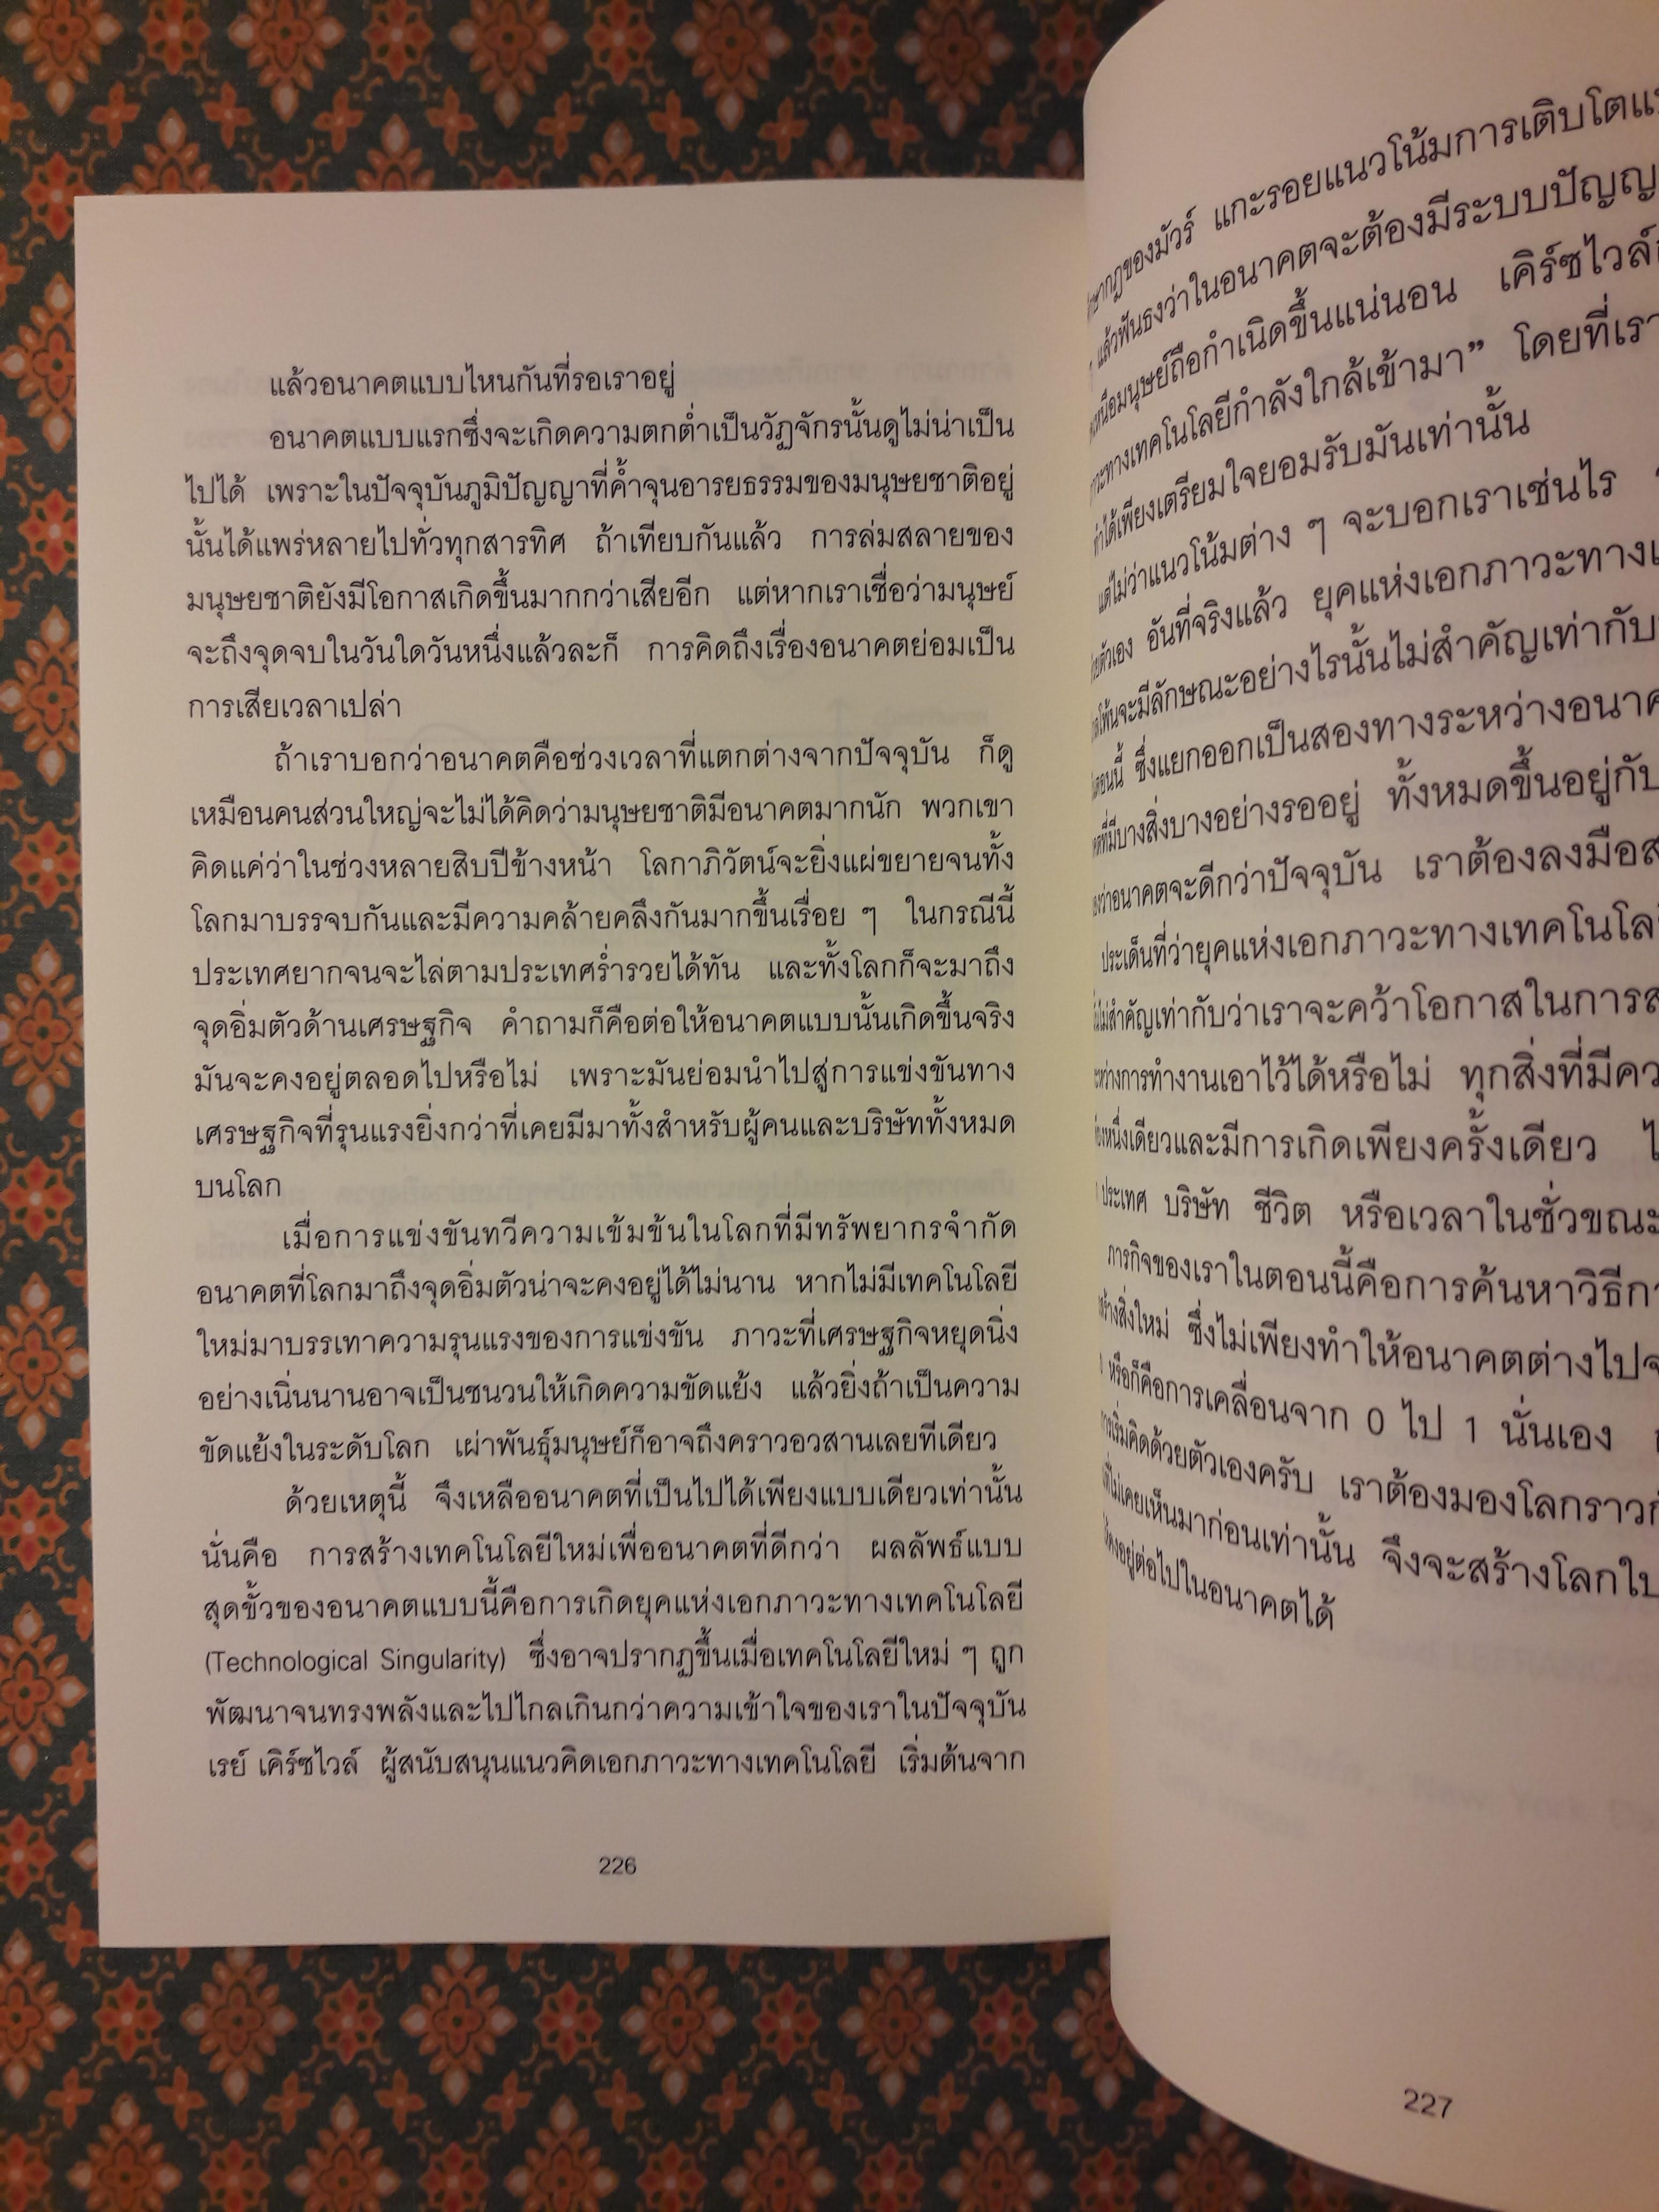 แล้วอนาคตแบบไหนกันที่รอเราอยู่
อนาคตแบบแรกซึ่งจะเกิดความตกต่ำเป็นวัฏจักรนั้นดูไม่น่าเป็น
ไปได้ เพราะในปัจจุบันภูมิปัญญาที่ค้ำจุนอารยธรรมของมนุษยชาติอยู่
นั้นได้แพร่หลายไปทั่วทุกสารทิศ ถ้าเทียบกันแล้ว การล่มสลายของ
มนุษยชาติยังมีโอกาสเกิดขึ้นมากกว่าเสียอีก แต่หากเราเชื่อว่ามนุษย์
จะถึงจุดจบในวันใดวันหนึ่งแล้วละก็ การคิดถึงเรื่องอนาคตย่อมเป็น
การเสียเวลาเปล่า
ถ้าเราบอกว่าอนาคตคือช่วงเวลาที่แตกต่างจากปัจจุบัน ก็ดู
เหมือนคนส่วนใหญ่จะไม่ได้คิดว่ามนุษยชาติมีอนาคตมากนัก พวกเขา
คิดแค่ว่าในช่วงหลายสิบปีข้างหน้า โลกาภิวัตน์จะยิ่งแผ่ขยายจนทั้ง
โลกมาบรรจบกันและมีความคล้ายคลึงกันมากขึ้นเรื่อย ๆ ในกรณีนี้
ประเทศยากจนจะไล่ตามประเทศร่ำรวยได้ทัน และทั้งโลกก็จะมาถึง
จุดอิ่มตัวด้านเศรษฐกิจ คำถามก็คือต่อให้อนาคตแบบนั้นเกิดขึ้นจริง
มันจะคงอยู่ตลอดไปหรือไม่ เพราะมันย่อมนำไปสู่การแข่งขันทาง
เศรษฐกิจที่รุนแรงยิ่งกว่าที่เคยมีมาทั้งสำหรับผู้คนและบริษัททั้งหมด
บนโลก
เมื่อการแข่งขันทวีความเข้มข้นในโลกที่มีทรัพยากรจำกัด
อนาคตที่โลกมาถึงจุดอิ่มตัวน่าจะคงอยู่ได้ไม่นาน หากไม่มีเทคโนโลยี
ใหม่มาบรรเทาความรุนแรงของการแข่งขัน ภาวะที่เศรษฐกิจหยุดนิ่ง
อย่างเนิ่นนานอาจเป็นชนวนให้เกิดความขัดแย้ง แล้วยิ่งถ้าเป็นความ
ขัดแย้งในระดับโลก เผ่าพันธุ์มนุษย์ก็อาจถึงคราวอวสานเลยทีเดียว
ด้วยเหตุนี้ จึงเหลืออนาคตที่เป็นไปได้เพียงแบบเดียวเท่านั้น
นั่นคือ การสร้างเทคโนโลยีใหม่เพื่ออนาคตที่ดีกว่า ผลลัพธ์แบบ
สุดขั้วของอนาคตแบบนี้คือการเกิดยุคแห่งเอกภาวะทางเทคโนโลยี
(Technological Singularity) ซึ่งอาจปรากฏขึ้นเมื่อเทคโนโลยีใหม่ ๆ ถูก
พัฒนาจนทรงพลังและไปไกลเกินกว่าความเข้าใจของเราในปัจจุบัน
เรย์ เคิร์ซไวล์ ผู้สนับสนุนแนวคิดเอกภาวะทางเทคโนโลยี เริ่มต้นจาก
226
ของมัวร์ แกะรอยแนวโน้มการเติบโต
แล้วฟันธงว่าในอนาคตจะต้องมีระบบ
เหนือมนุษย์ถือกำเนิดขึ้นแน่นอน เคิร์ซไวล์
ทางเทคโนโลยีกำลังใกล้เข้ามา” โดยที่เรา
ทำได้เพียงเตรียมใจยอมรับมันเท่านั้น
แต่ไม่ว่าแนวโน้มต่าง ๆ จะบอกเราเช่นไร
อันที่จริงแล้ว ยุคแห่งเอกภาวะทาง
จะมีลักษณะอย่างไรนั้นไม่สำคัญเท่ากับ
ตอนนี้ ซึ่งแยกออกเป็นสองทางระหว่าง
ที่มีบางสิ่งบางอย่างรออยู่ ทั้งหมดขึ้นอยู่กับ
ว่าอนาคตจะดีกว่าปัจจุบัน เราต้องลงมือ
ประเด็นที่ว่ายุคแห่งเอกภาวะทาง
ไม่สำคัญเท่ากับว่าเราจะคว้าโอกาสในการ
การทำงานเอาไว้ได้หรือไม่ ทุกสิ่งที่มี
หนึ่งเดียวและมีการเกิดเพียงครั้งเดียว
ประเทศ บริษัท ชีวิต หรือเวลาในชั่วขณะ
ภารกิจของเราในตอนนี้คือการค้นหา
สร้างสิ่งใหม่ ซึ่งไม่เพียงทำให้อนาคตต่างไป
หรือก็คือการเคลื่อนจาก 0 ไป 1 นั่นเอง
เริ่มคิดด้วยตัวเองครับ เราต้องมองโลก
ที่ไม่เคยเห็นมาก่อนเท่านั้น จึงจะสร้างโลก
อยู่ต่อไปในอนาคตได้
227